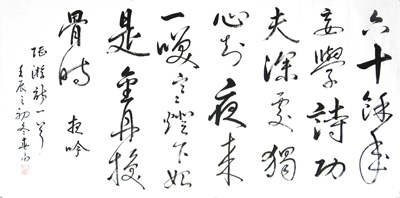 六十餘年
妄學詩功
夫深處獨
心知夜來
一咲寒燈下始
是金丹換
骨時 夜吟
陸游詩一首
壬辰之初冬